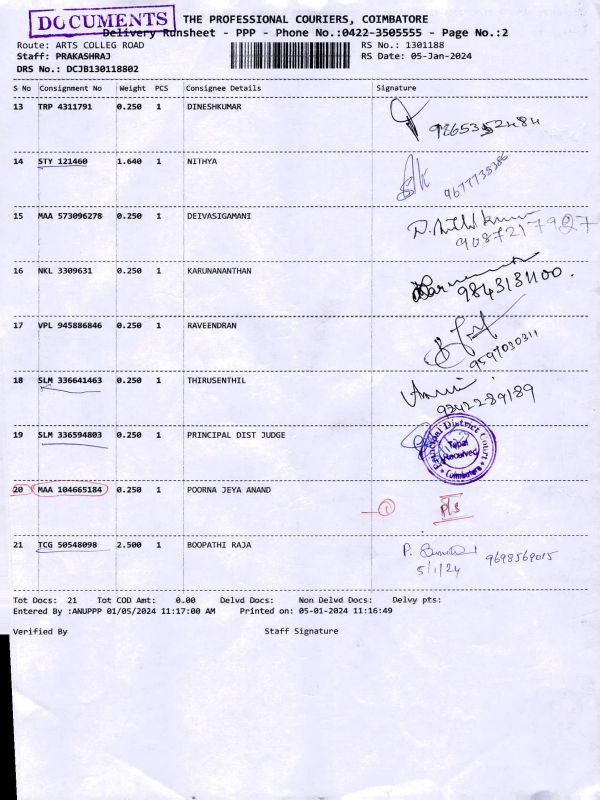 DOCUMENTS
THE PROFESSIONAL COURIERS, COIMBATORE
Delivery Runsheet - PPP - Phone No.:0422-3505555 - Page No.:2
Route: ARTS COLLEG ROAD RS No.: 1301188
Staff: PRAKASHRAJ RS Date: 05-Jan-2024
DRS No.: DCJB130118802
S No Consignment No Weight PCS Consignee Details Signature
13 TRP 4311791 0.250 1 DINESHKUMAR
14 STY 121460 1.640 1 NITHYA
15 MAA 573096278 0.250 1 DEIVASIGAMANI
9087217927
16 NKL 3309631 0.250 1 KARUNANANTHAN
9843131100.
17 VPL 945886846 0.250 1 RAVEENDRAN
9597030311
18 SLM 336641463 0.250 1 THIRUSENTHIL
9342289189
19 SLM 336594803 0.250 1 PRINCIPAL DIST JUDGE
Principal District Court
Tapal
Received
Coimbatore
20 MAA 104665184 0.250 1 POORNA JEYA ANAND
1 P/S
21 TCG 50548098 2.500 1 BOOPATHI RAJA
9698569015
5/1/24
Tot Docs: 21 Tot COD Amt: 0.00 Delvd Docs: Non Delvd Docs: Delvy pts:
Entered By :ANUPPP 01/05/2024 11:17:00 AM Printed on: 05-01-2024 11:16:49
Verified By Staff Signature